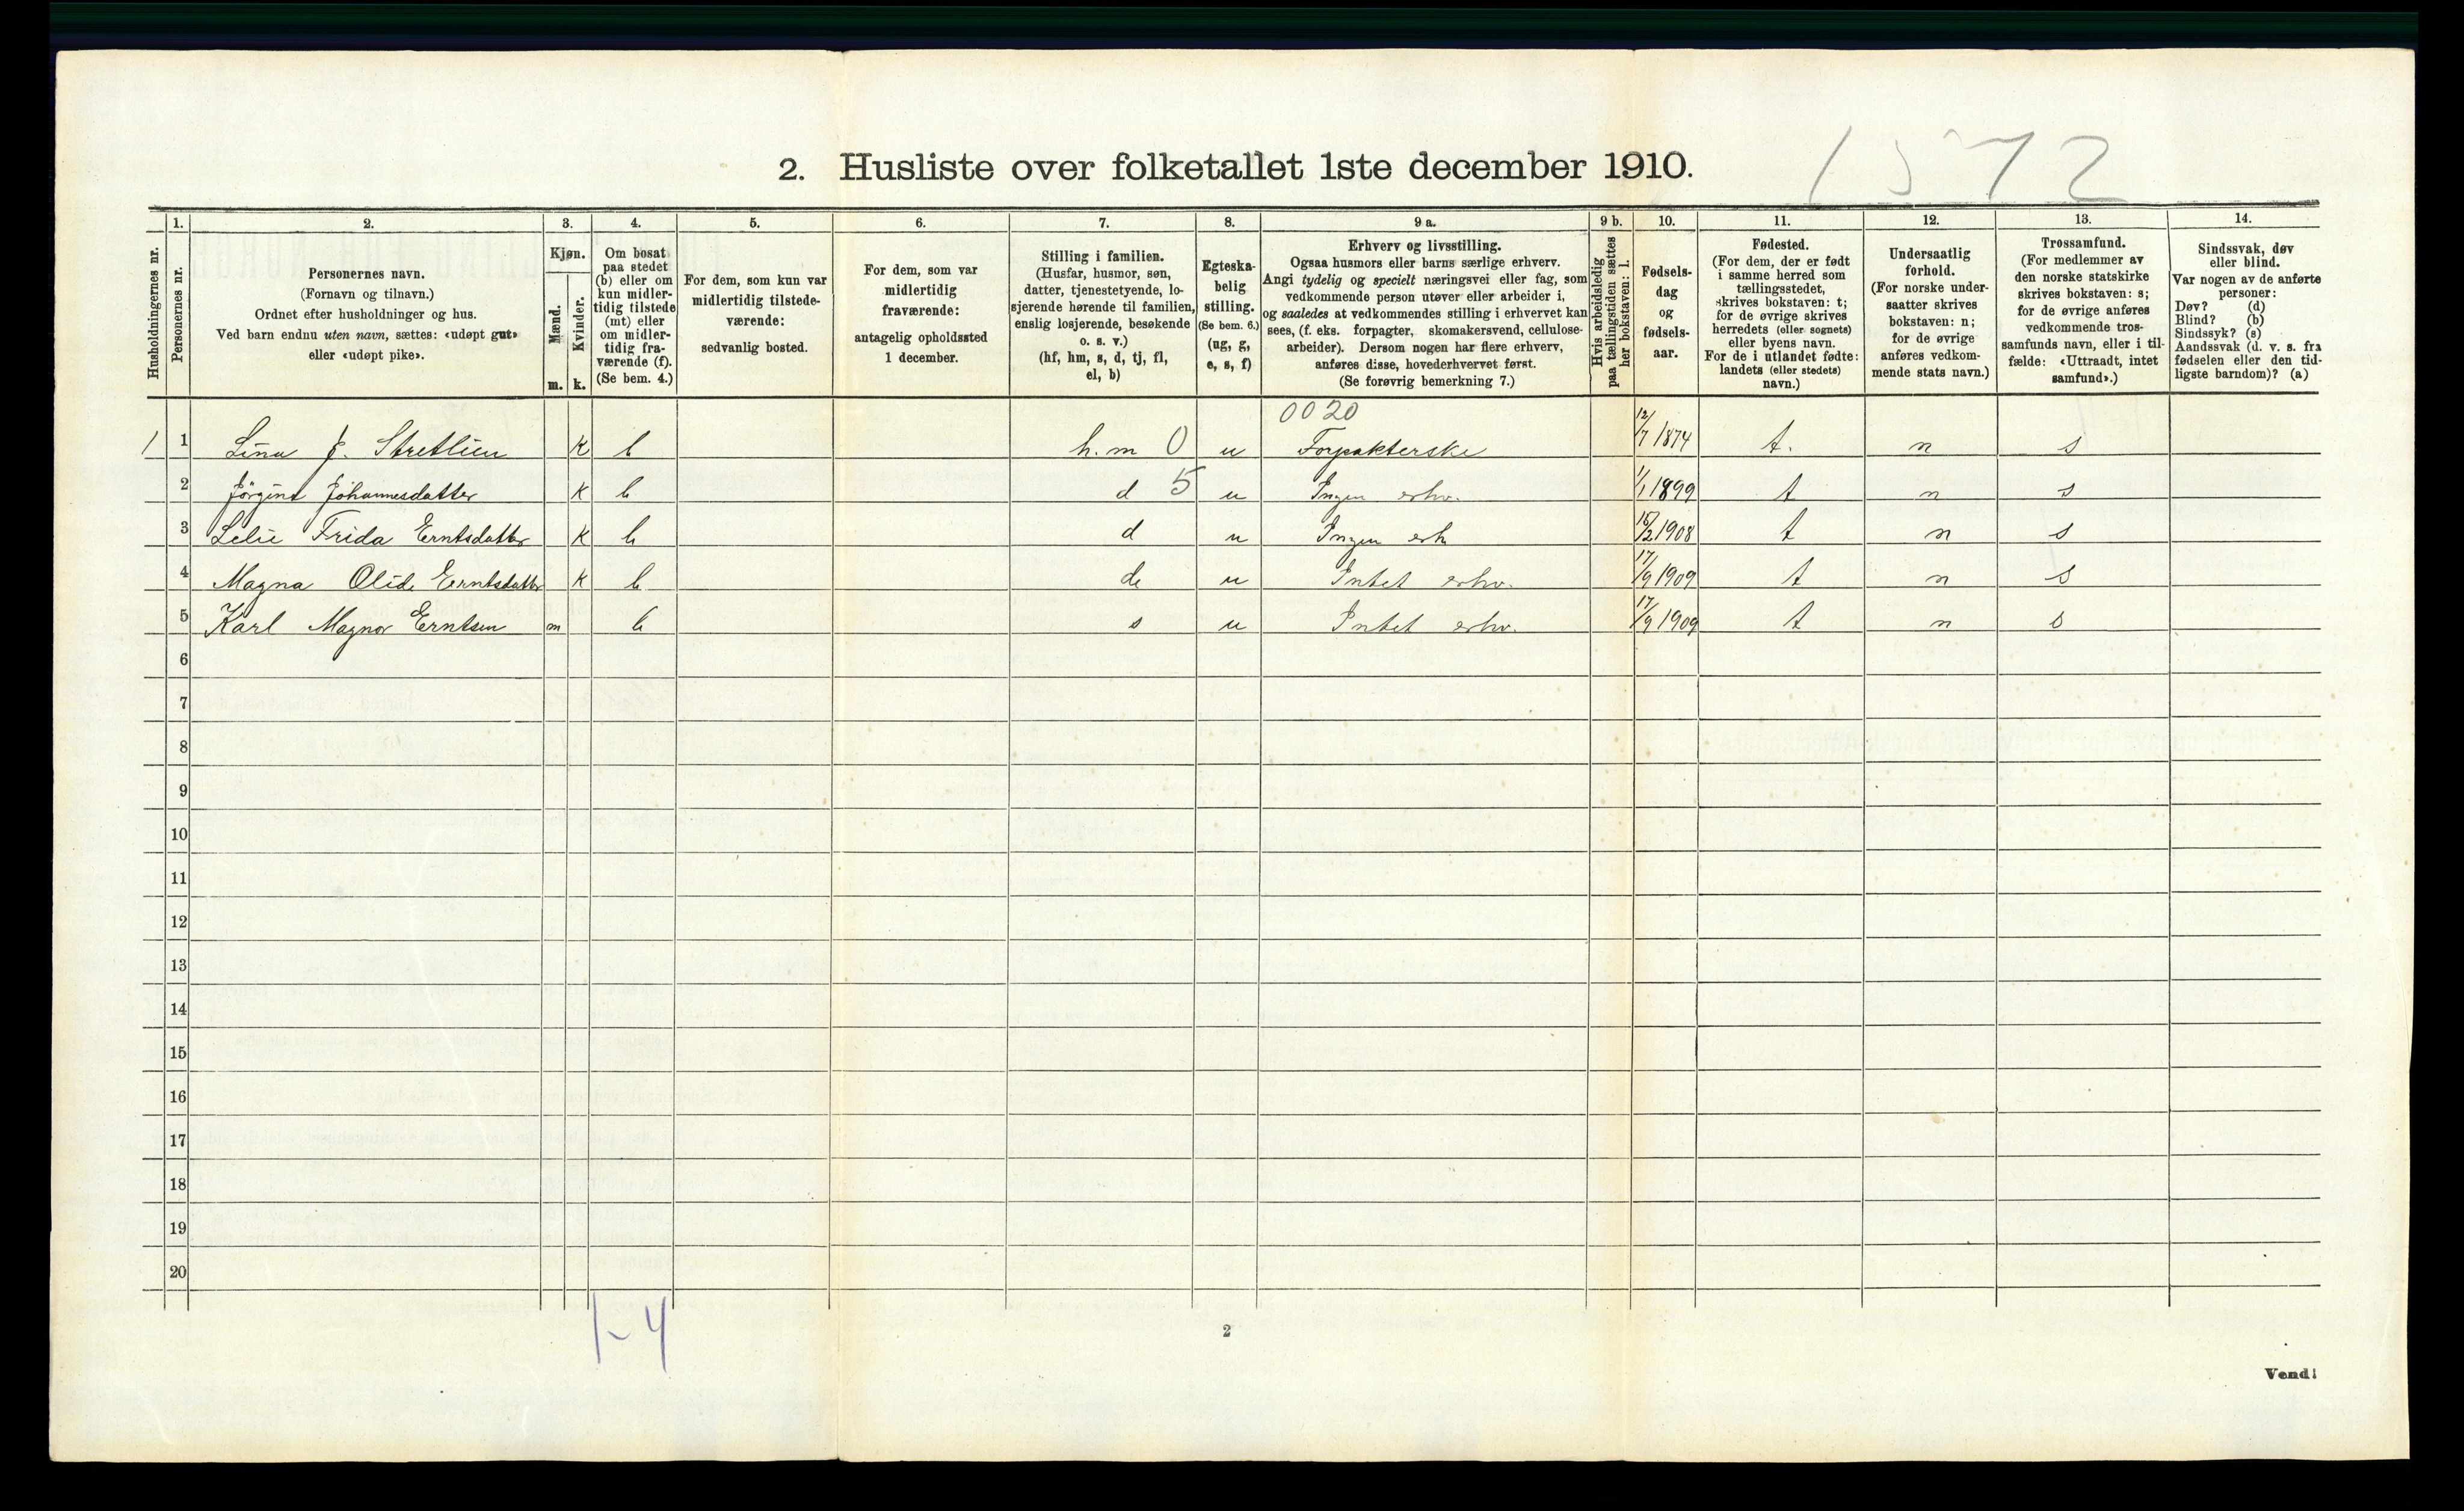 1572
2. Husliste over folketallet 1ste december 1910.
Husholdningernes nr.
1.
Personernes nr.
2.
Personernes navn.
(Fornavn og tilnavn.)
Ordnet efter husholdninger og hus.
Ved barn endnu uten navn, sættes: «udøpt gut»
eller «udøpt pike».
3.
Kjøn.
Mænd.
m.
Kvinder.
k.
4.
Om bosat
paa stedet
(b) eller om
kun midler-
tidig tilstede
(mt) eller
om midler-
tidig fra-
værende (f).
(Se bem. 4.)
5.
For dem, som kun var
midlertidig tilstede-
værende:
sedvanlig bosted.
6.
For dem, som var
midlertidig
fraværende:
antagelig opholdssted
1 december.
7.
Stilling i familien.
(Husfar, husmor, søn,
datter, tjenestetyende, lo-
sjerende hørende til familien,
enslig losjerende, besøkende
o. s. v.)
(hf, hm, s, d, tj, fl,
el, b)
8.
Egteska-
belig
stilling.
(Se bem. 6.)
(ug, g,
e, s, f)
9 a.
Erhverv og livsstilling.
Ogsaa husmors eller barns særlige erhverv.
Angi tydelig og specielt næringsvei eller fag, som
vedkommende person utøver eller arbeider i,
og saaledes at vedkommendes stilling i erhvervet kan
sees, (f. eks. forpagter, skomakersvend, cellulose-
arbeider). Dersom nogen har flere erhverv,
anføres disse, hovederhvervet først.
(Se forøvrig bemerkning 7.)
9 b.
Hvis arbeidsledig
paa tællingstiden sættes
her bokstaven: l.
10.
Fødsels-
dag
og
fødsels-
aar.
11.
Fødested.
(For dem, der er født
i samme herred som
tællingsstedet,
skrives bokstaven: t;
for de øvrige skrives
herredets (eller sognets)
eller byens navn.
For de i utlandet fødte:
landets (eller stedets)
navn.)
12.
Undersaatlig
forhold.
(For norske under-
saatter skrives
bokstaven: n;
for de øvrige
anføres vedkom-
mende stats navn.)
13.
Trossamfund.
(For medlemmer av
den norske statskirke
skrives bokstaven: s;
for de øvrige anføres
vedkommende tros-
samfunds navn, eller i til-
fælde: «Uttraadt, intet
samfund».)
14.
Sindssvak, døv
eller blind.
Var nogen av de anførte
personer:
Døv? (d)
Blind? (b)
Sindssyk? (s)
Aandssvak (d. v. s. fra
fødselen eller den tid-
ligste barndom)? (a)
0020
1 1 Lina J. Stretlien K b h.m 0 u Forpakterske 12/7 1874 t. n s
2 Jörgine Johannesdatter K b d 5 u Ingen erhv. 1/1 1899 t n s
3 Frida Erntsdatter K b d u Ingen erh 15/2 1908 t n s
4 Magna Olide Erntsdatter K b de u Intet erhv. 17/9 1909 t n s
5 Karl Magnor Erntsen m b s u Intet erhv. 17/9 1909 t n s
6
7
8
9
10
11
12
13
14
15
16
17
18
19
20
1-4
2
Vend!